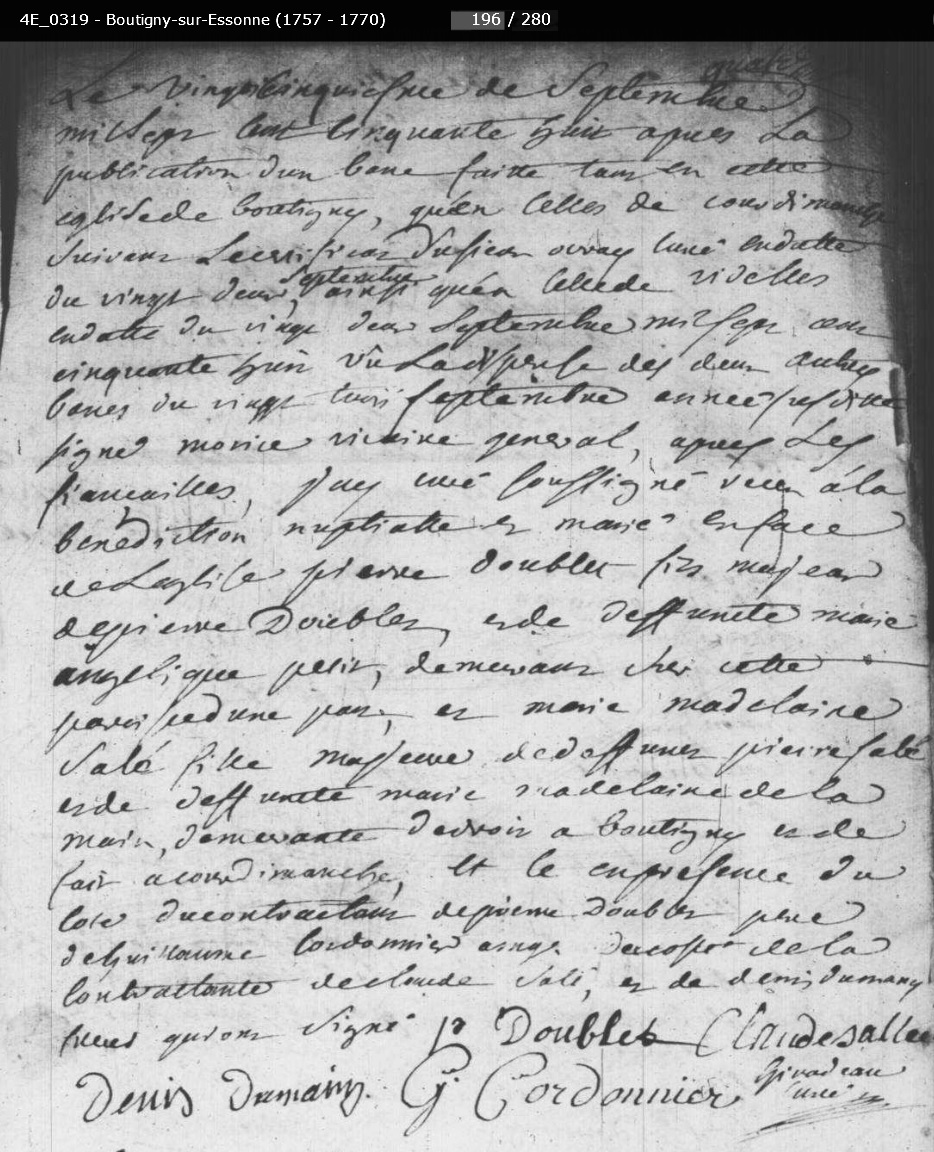 4E_0319 - Boutigny-sur-Essonne (1757 - 1770) 196 / 280
Le vingt cinquiesme de Septembre
mil sept cent cinquante huit apres La
publication d'un banc faitte tant en cette
eglise de boutigny, qu'en celles de courdimanche
suivant Le certificat du sieur curé endatte
du vingt deux septembre, ainsi qu'en celle de videlles
endatte du vingt deux septembre mil sept cent
cinquante huit vû La dispense des deux autres
bancs du vingt trois septembre année susditte
signé morice vicaire general, apres Les
fiancailles, j'ay curé soussigné receu à la
benediction nuptialle et marié en face
de L'eglise pierre doublet fils majeur
de pierre Doublet, et de deffuncte marie
angelique petit, demeurant sur cette
paroisse d'une part, et marie madelaine
Salé fille majeure de deffunct pierre salé
et de deffuncte marie madelaine de la
main, demeurante de droit a boutigny et de
fait a courdimanche, et ce en presence du
coté du contractant de pierre Doublet pere
de guillaume Cordonnier du costé de la
contractante de claude Salé, et de denis dumany
qui ont signé P Doublet Claude Sallee
Denis Dumainy G Cordonnier Giradeau
curé